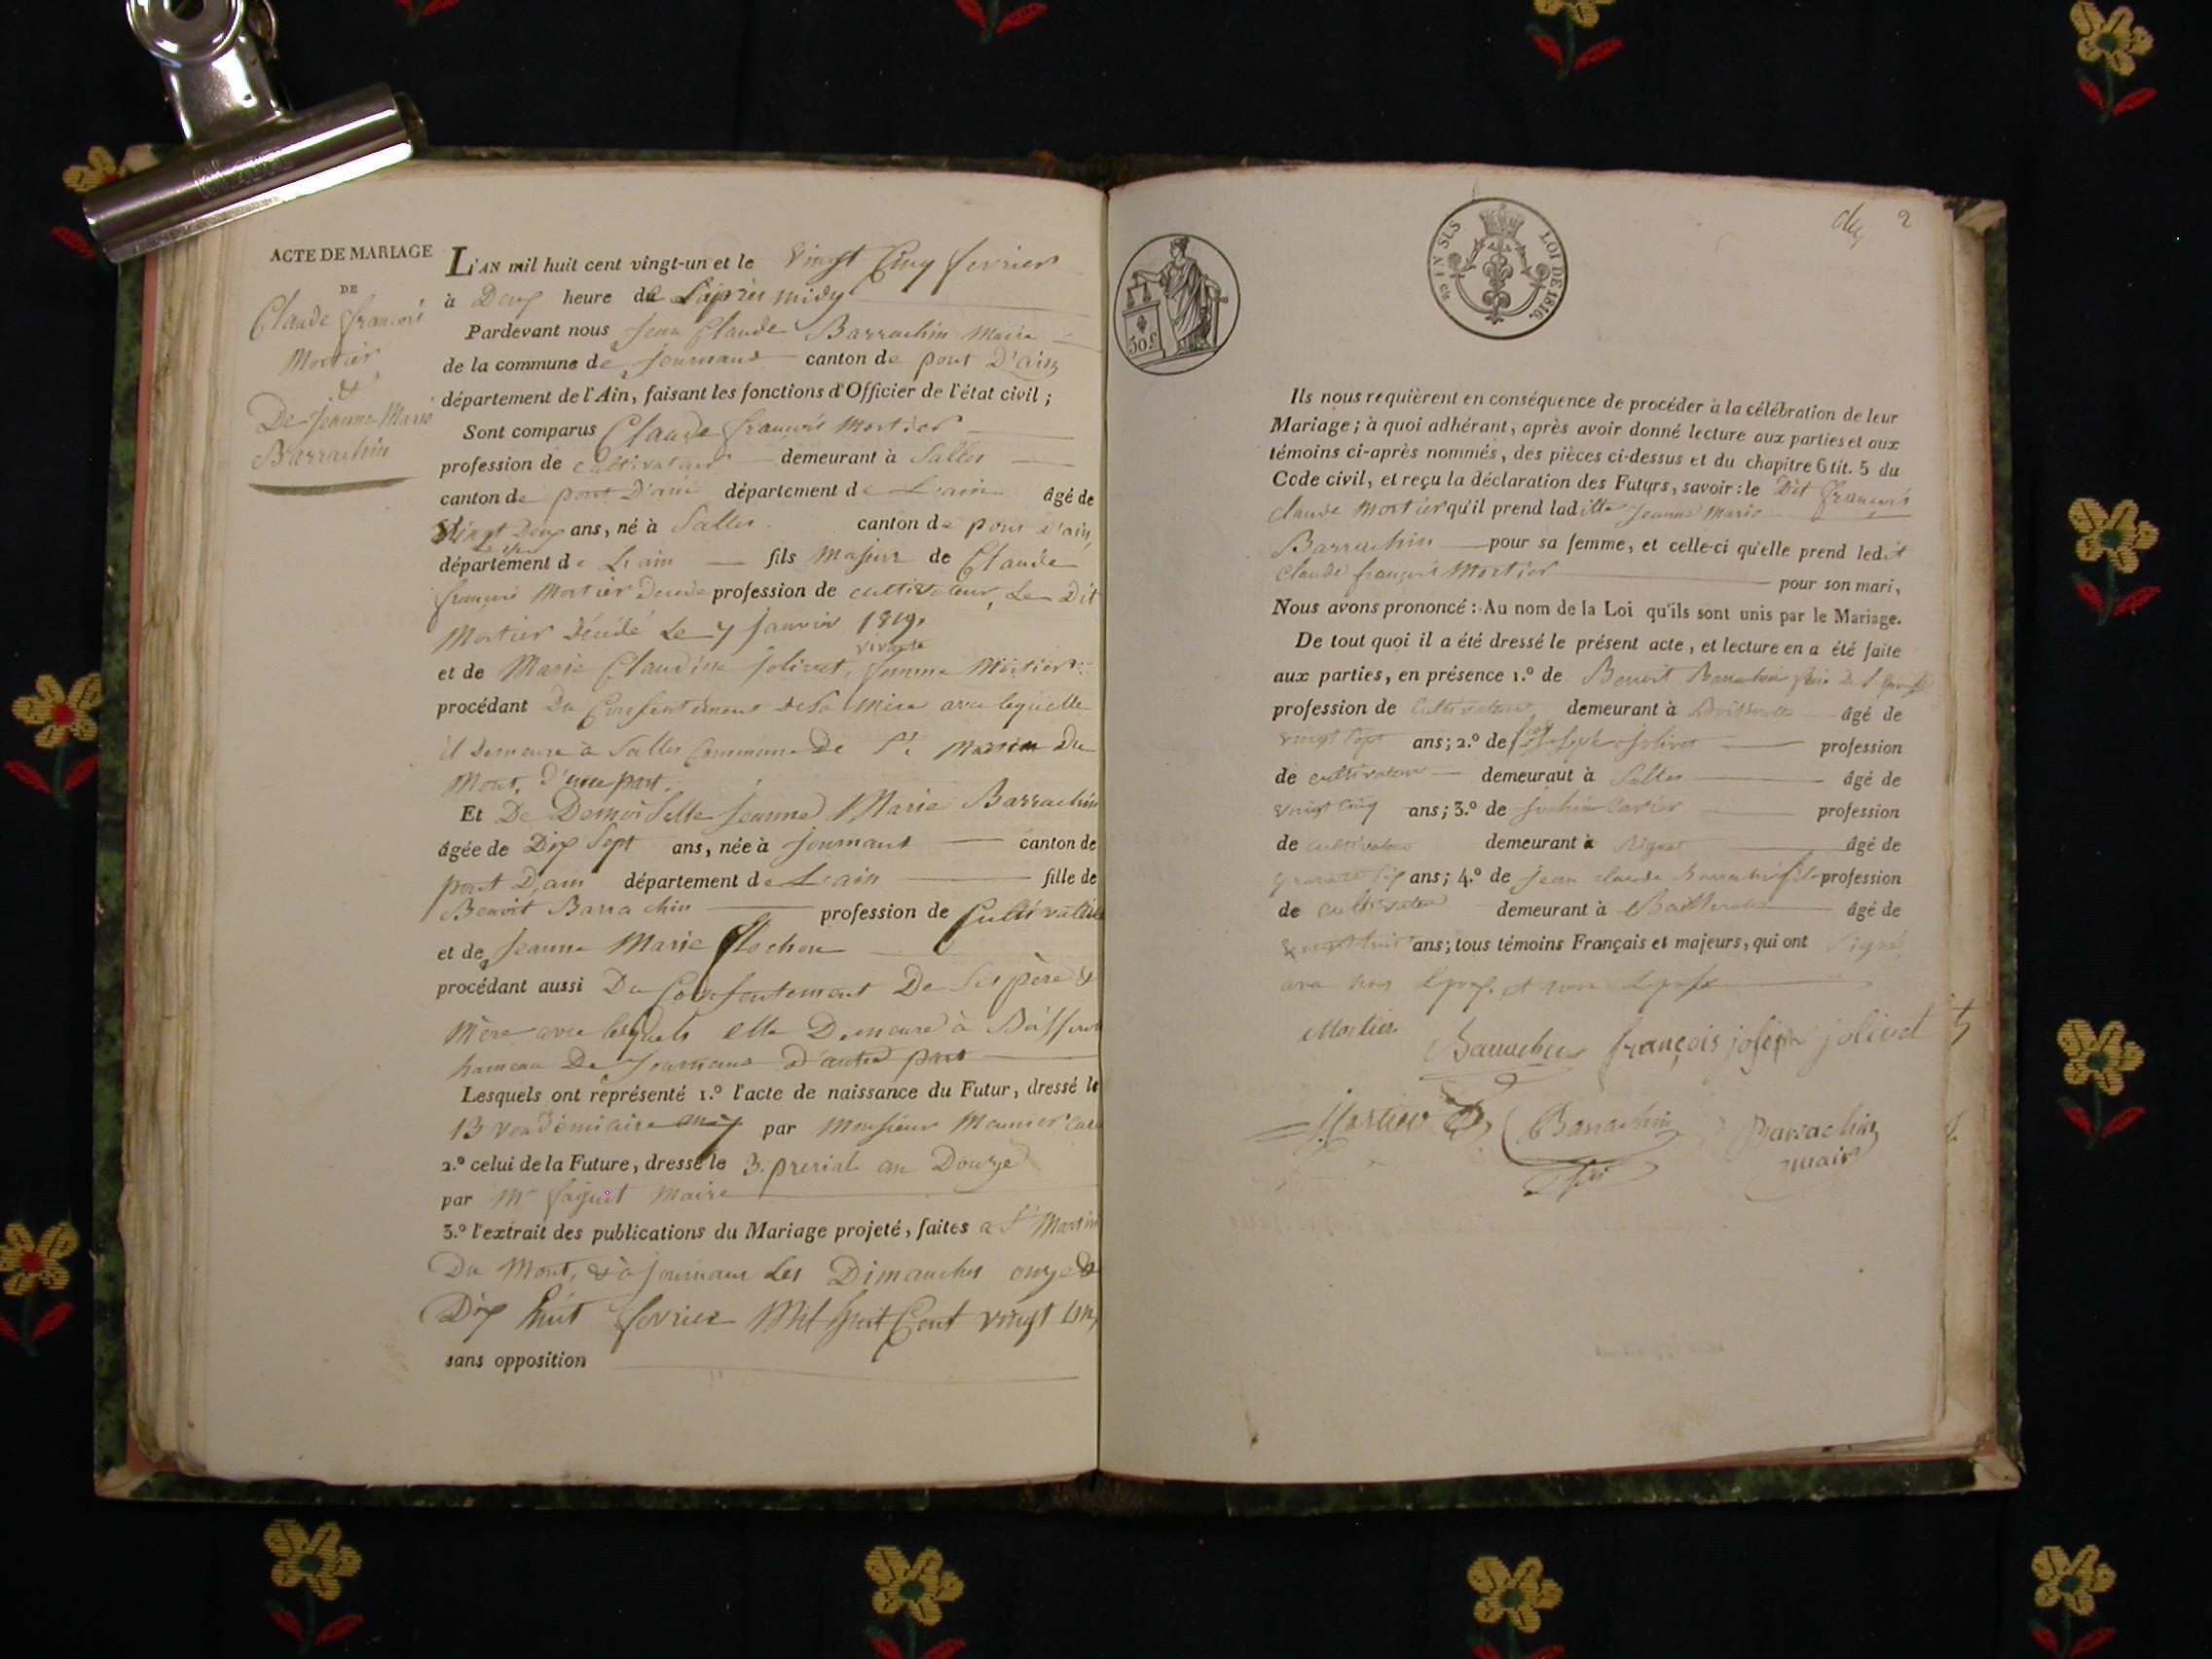 ACTE DE MARIAGE
DE
Claude françois
Mortier
&
De jeanne Marie
Barrachin
L'AN mil huit cent vingt-un et le vingt Cinq fevrier
à Deux heure de L'après midy
Pardevant nous jean Claude Barrachin Maire
de la commune de journans canton de pont D'ain
département de l'Ain, faisant les fonctions d'Officier de l'état civil ;
Sont comparus Claude françois Mortier
profession de cultivateur demeurant à Salles
canton de pont D'ain département de L'ain âgé de
vingt Deux ans, né à Salles canton de pont D'ain
département de L'ain fils Majeur de Claude
françois Mortier profession de cultivateur, Le Dit
Mortier Décédé Le 7 janvier 1819,
vivante
et de Marie Claudine jolivet, femme Mortier
procédant Du Consentement de Sa Mère avec laquelle
il Demeure à Salles Commune De St Martin Du
Mont, D'une part.
Et De Demoiselle jeanne Marie Barrachin
âgée de Dix Sept ans, née à journans canton de
pont D'ain département de L'ain fille de
Benoit Barrachin profession de Cultivateur
et de jeanne Marie
procédant aussi Du Consentement De Ses père &
Mère avec lesquels elle Demeure à
hameau De journans D'autre part
Lesquels ont représenté 1.º l'acte de naissance du Futur, dressé le
13 vendémiaire an 7 par Monsieur Meunier Curé
2.º celui de la Future, dressé le 3. prerial an Douze
par Mr faguet Maire
3.º l'extrait des publications du Mariage projeté, faites a St Martin
Du Mont, & à journans Les Dimanches onze &
Dix huit fevrier Mil huit Cent vingt Un,
sans opposition
2
50 c
LOI DE 1816.
Ils nous requièrent en conséquence de procéder à la célébration de leur
Mariage ; à quoi adhérant, après avoir donné lecture aux parties et aux
témoins ci-après nommés, des pièces ci-dessus et du chapitre 6 tit. 5 du
Code civil, et reçu la déclaration des Futurs, savoir : le Dit françois
claude Mortier qu'il prend laditte jeanne Marie
Barrachin pour sa femme, et celle-ci qu'elle prend ledit
claude françois Mortier pour son mari,
Nous avons prononcé : Au nom de la Loi qu'ils sont unis par le Mariage.
De tout quoi il a été dressé le présent acte, et lecture en a été faite
aux parties, en présence 1.º de Benoit Barrachin
profession de Cultivateur demeurant à âgé de
vingt Sept ans ; 2.º de joseph jolivet profession
de cultivateur demeurant à Salles âgé de
vingt Cinq ans ; 3.º de profession
de cultivateur demeurant à âgé de
ans ; 4.º de jean claude Barrachin fils profession
de cultivateur demeurant à âgé de
ans ; tous témoins Français et majeurs, qui ont Signé
avec nous
Mortier Barrachin françois joseph jolivet
Mortier Barrachin Barrachin
fils maire